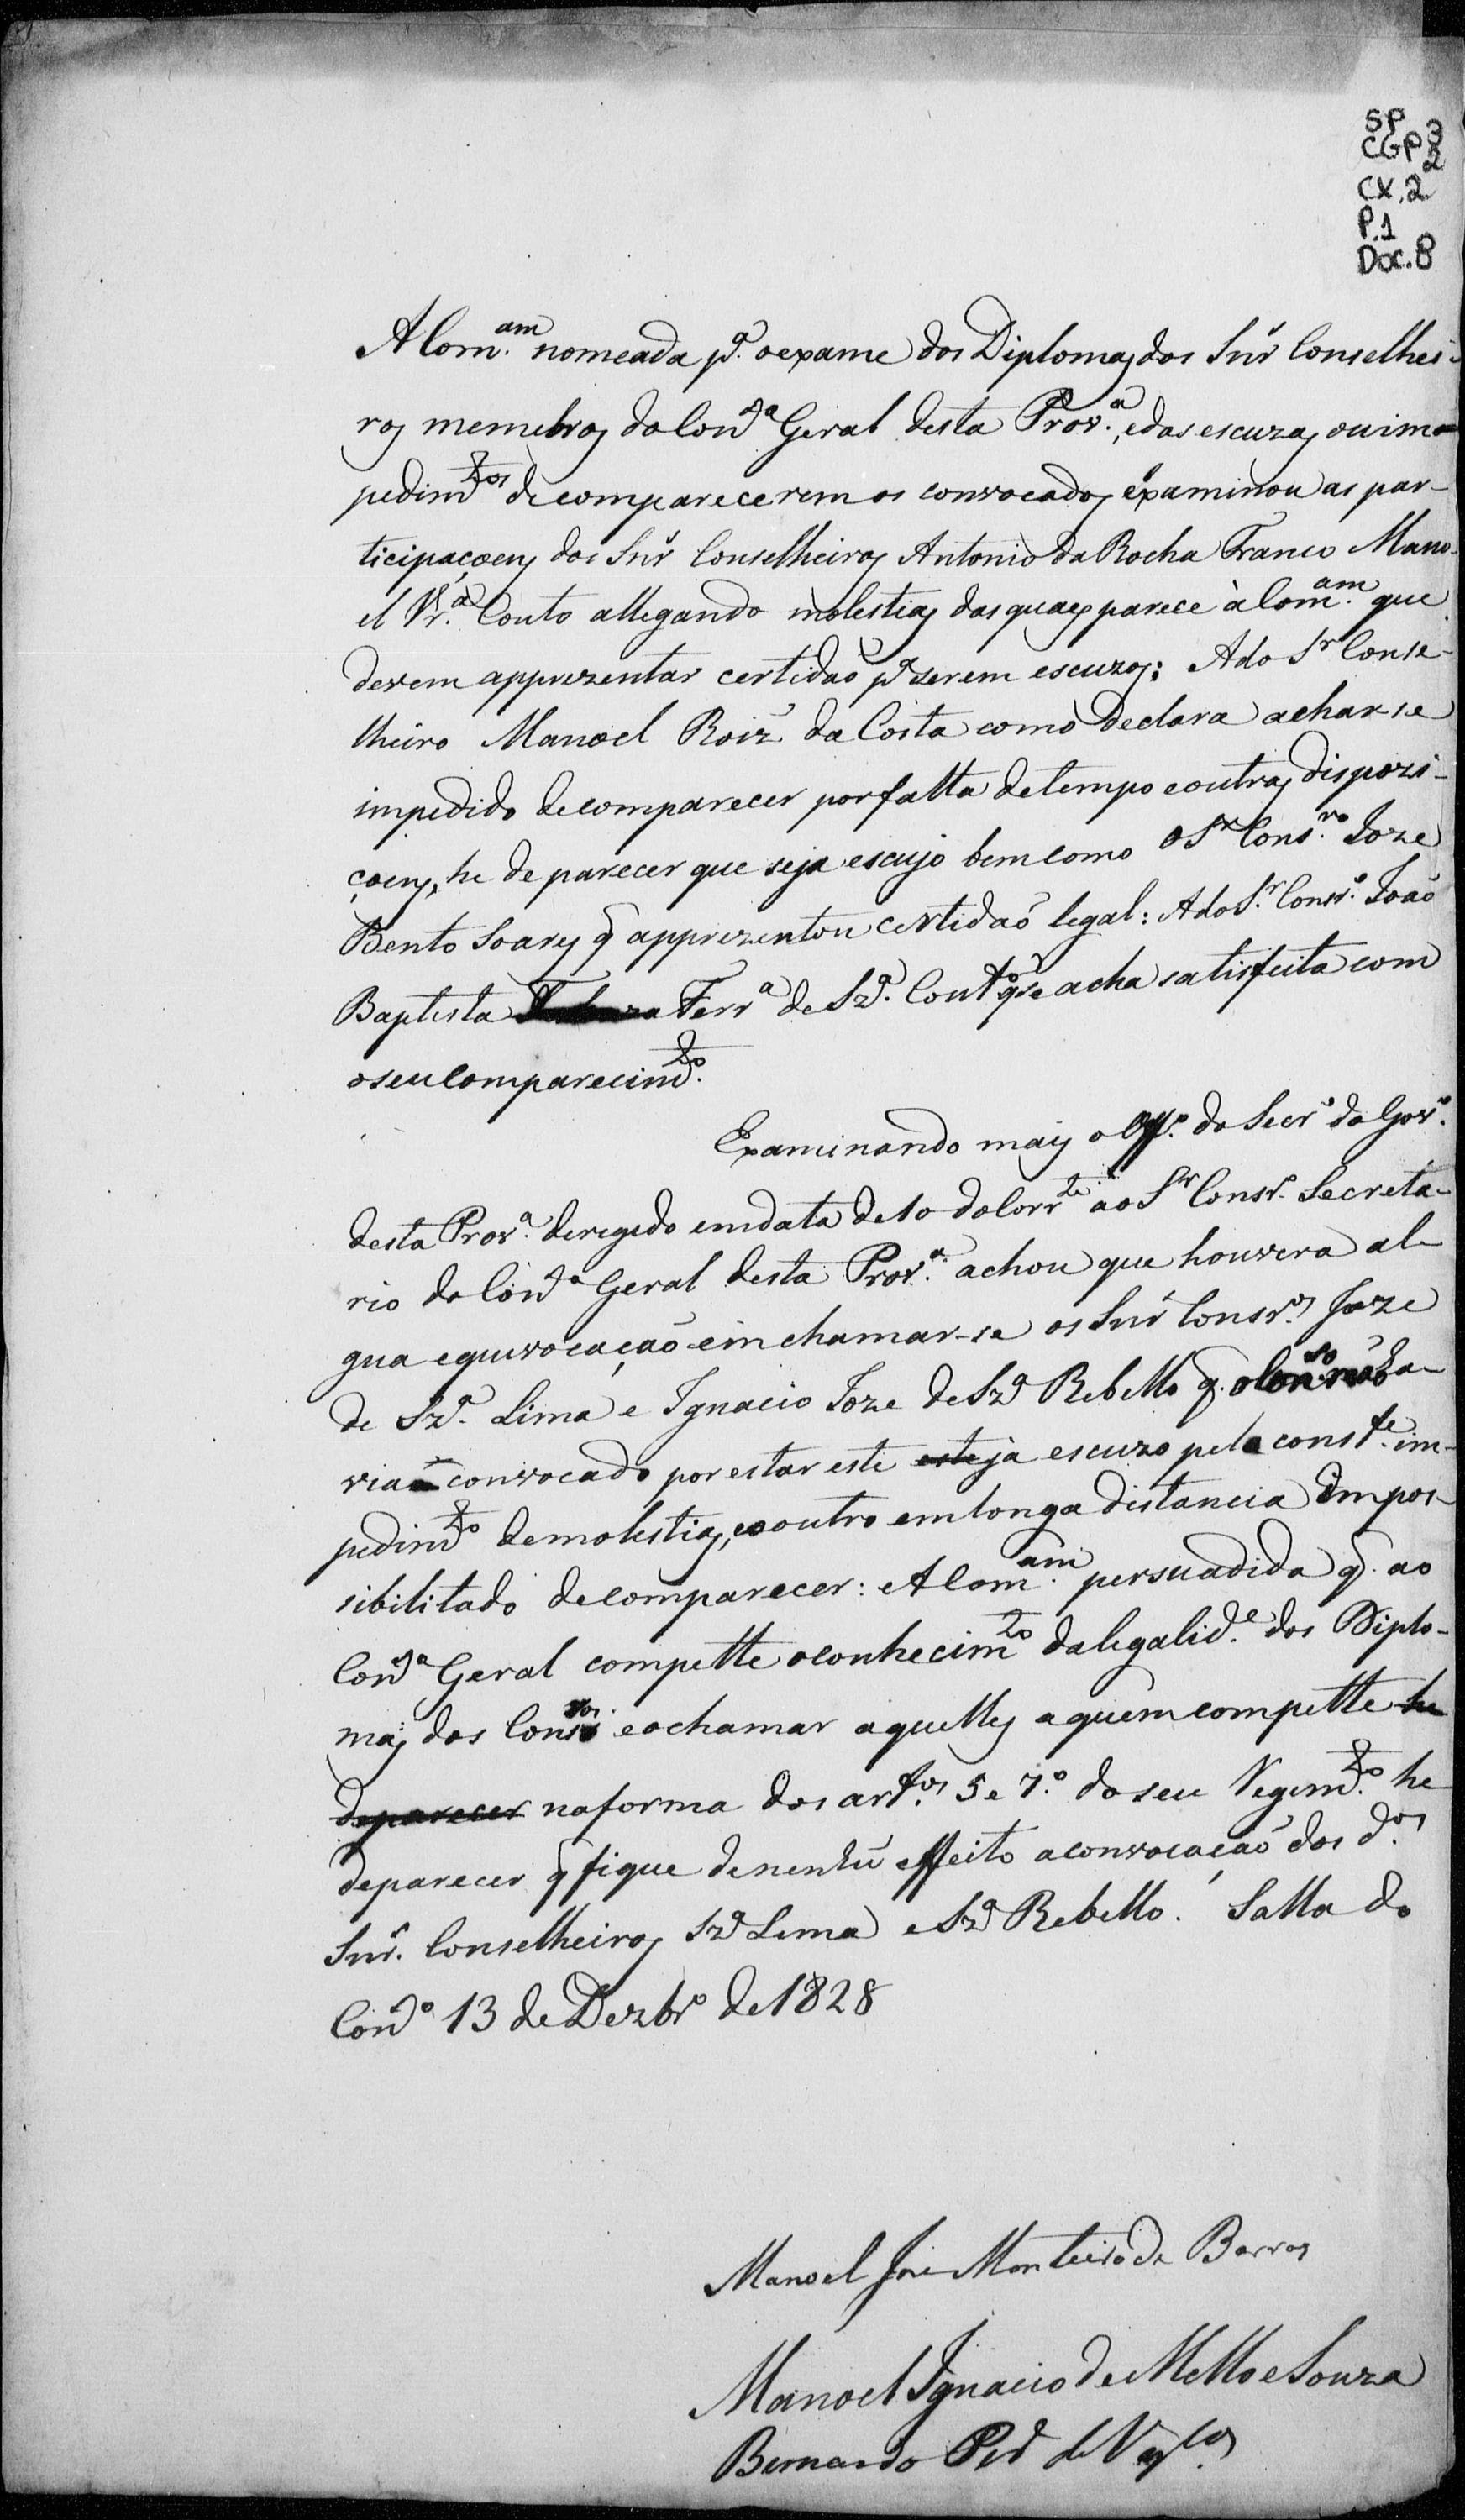 SP
CGP 3
2
CX.2
P.1
Doc.8
A Com.am nomeada p.a o exame dos Diplomas dos Snr̃ Conselhei-
ros memebros do Con.o Geral desta Prov.a, e das escuzas ou im-
pedim.tos de comparecerem os convocados, examinou as par-
ticipaçoens dos Snr̃ Conselheiros Antonio da Rocha Franco Mano-
el Couto allegando molestias das quaes parece à Com.am que
devem apprezentar certidaõ p.a serem escuzos: A do Sr Conse-
lheiro Manoel Roiz da Costa como declara achar-se
impedido de comparecer por falta de tempo e outras dispozi-
çoens, he de parecer que seja escuso bem como o Sr Cons.ro Joze
Bento Soares q̃ apprezentou certidaõ legal: A do S.r Cons.ro Joaõ
Baptista Ferr.a de Sz.a Cout.o q̃ se acha satisfeita com
o seu comparecim.to
Examinando mais o Off.o do Secr.o do Gov.o
desta Prov.a deregido em data de 10 do Corr.te ao Sr Cons.ro Secreta-
rio do Con.o Geral desta Prov.a achou que houvera al-
gua equivocaçaõ em chamar-se os Snr̃ Cons.ros Joze
de Sz.a Lima e Ignacio Joze de Sz.a Rebello q. o Con.so naõ ha-
via convocado por estar este ja escuzo pelo const.te im-
pedim.to de molestias, e o outro em longa distancia impos-
sibilitado de comparecer: A Com.am persuadida q. ao
Con.o Geral compette o conhecim.to da legalid.e dos Diplo-
mas dos Cons.ros e o chamar aquelles a quem compette he
de parecer na forma dos art.os 5 e 7.o do seu Regim.to he
de parecer q̃ fique de nenhũ effeito a convocaçaõ dos d.os
Snr̃. Conselheiros Sz.a Lima e Sz.a Rebello. Salla do
Con.o 13 de Dezbr.o de 1828
Manoel Joze Monteiro de Barros
Manoel Ignacio de Mello e Souza
Bernardo P.ra de Vas.los